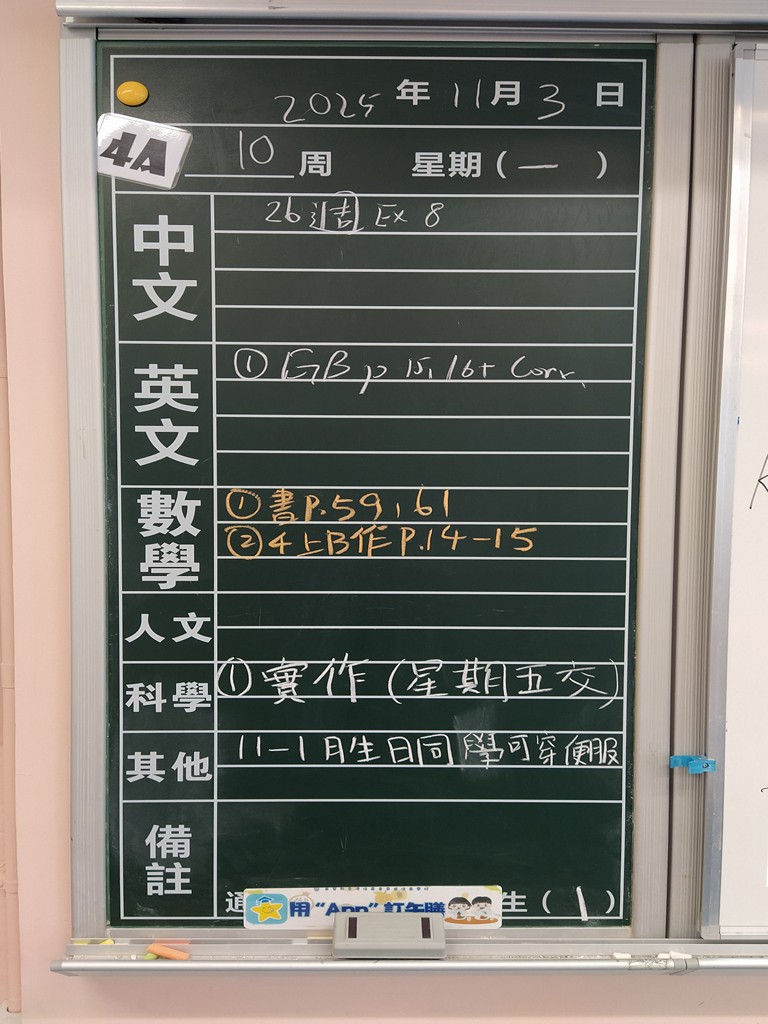 2025 年 11 月 3 日
4A
10 周 星期(一)
中文
26 週 Ex 8
英文
① GB p 15, 16 + Corr.
數學
① 書P.59,61
② 4上B作P.14-15
人文
科學
① 實作(星期五交)
其他
11-1月生日同學可穿便服
備註
通
生(1)
用“App”訂午膳